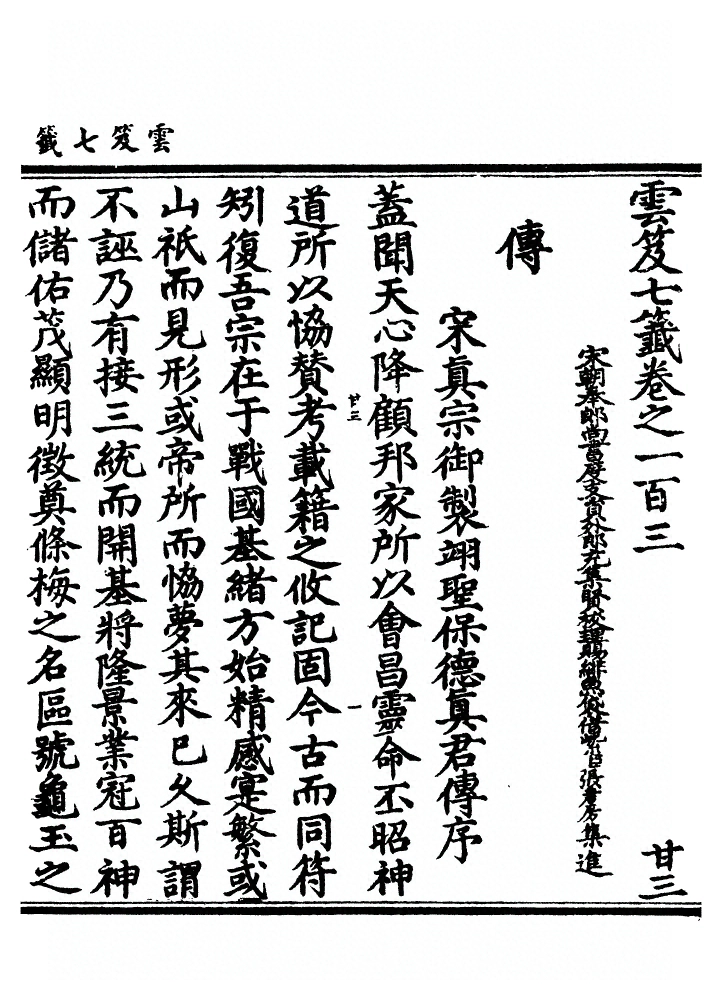 雲笈七籤
雲笈七籤卷之一百三　廿三
宋朝奉郎尚書度支員外郎充集賢校理賜緋魚袋借紫臣張君房集進
傳
宋真宗御製翊聖保德真君傳序
蓋聞天心降顧邦家所以會昌靈命丕昭神
廿三　一
道所以恊贊考載籍之攸記固今古而同符
矧復吾宗在于戰國基緒方始精感寔繁或
山祇而見形或帝所而恊夢其來已久斯謂
不誣乃有接三統而開基將隆景業冠百神
而儲佑茂顯明徵奠條梅之名區號龜玉之